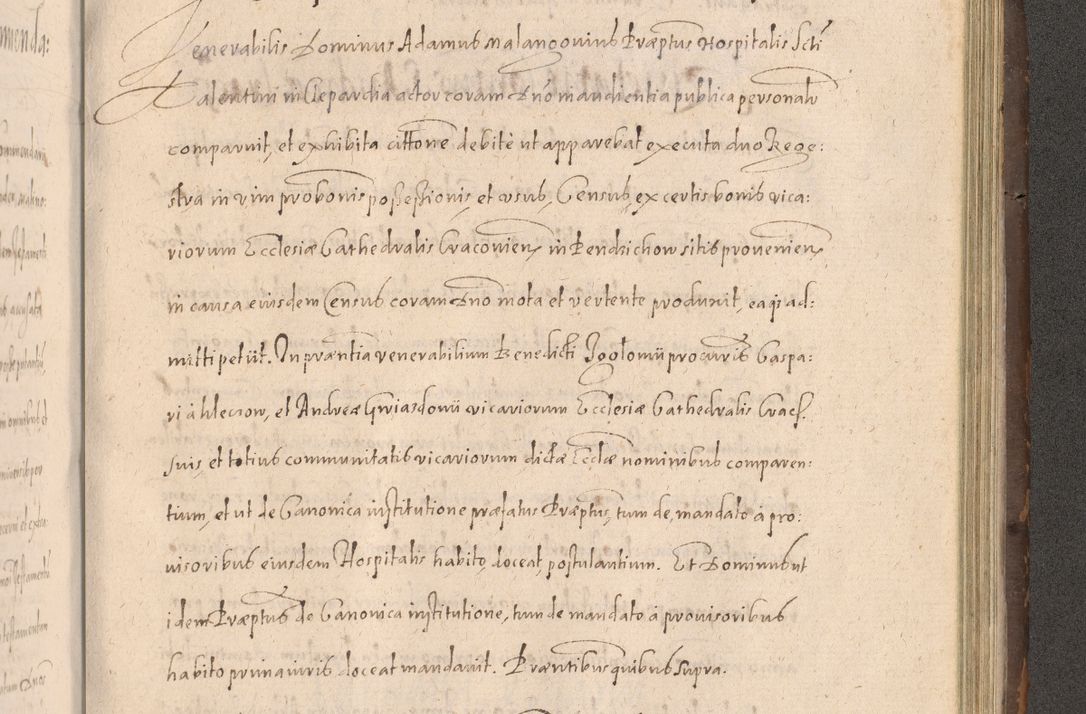 Venerabilis Dominus Adamus Malangovius Præptus Hospitalis Scti
Valentini in Clepardia actor coram Dno in audientia publica personalr
comparuit, et exhibita cittone debite ut apparebat executa duo Rege:
stra in vim probonis possessionis, et usus, Census, ex certis bonis vica:
riorum Ecclesiæ Cathedralis Cracovien in Bendzichow sitis provenien
in causa eiusdem Census coram Dno mota et vertente produxit, ea q̃ ad:
mitti petiit. In præntia venerabilium Benedicti procuris Caspa:
ri à et Andreæ Gwiasdonii vicariorum Ecclesiæ Cathedralis Crac.
suis, et totius communitatis vicariorum dictæ Ecclæ nominibus comparen:
tium, et ut de Canonica institutione præfatus Præptus, tum de mandato à pro:
visoribus eiusdem Hospitalis habito, doceat, postulantium. Et Dominus ut
idem Præptus de Canonica institutione, tum de mandato à provisoribus
habito prima iuris doceat mandavit. Præntibus quibus supra.